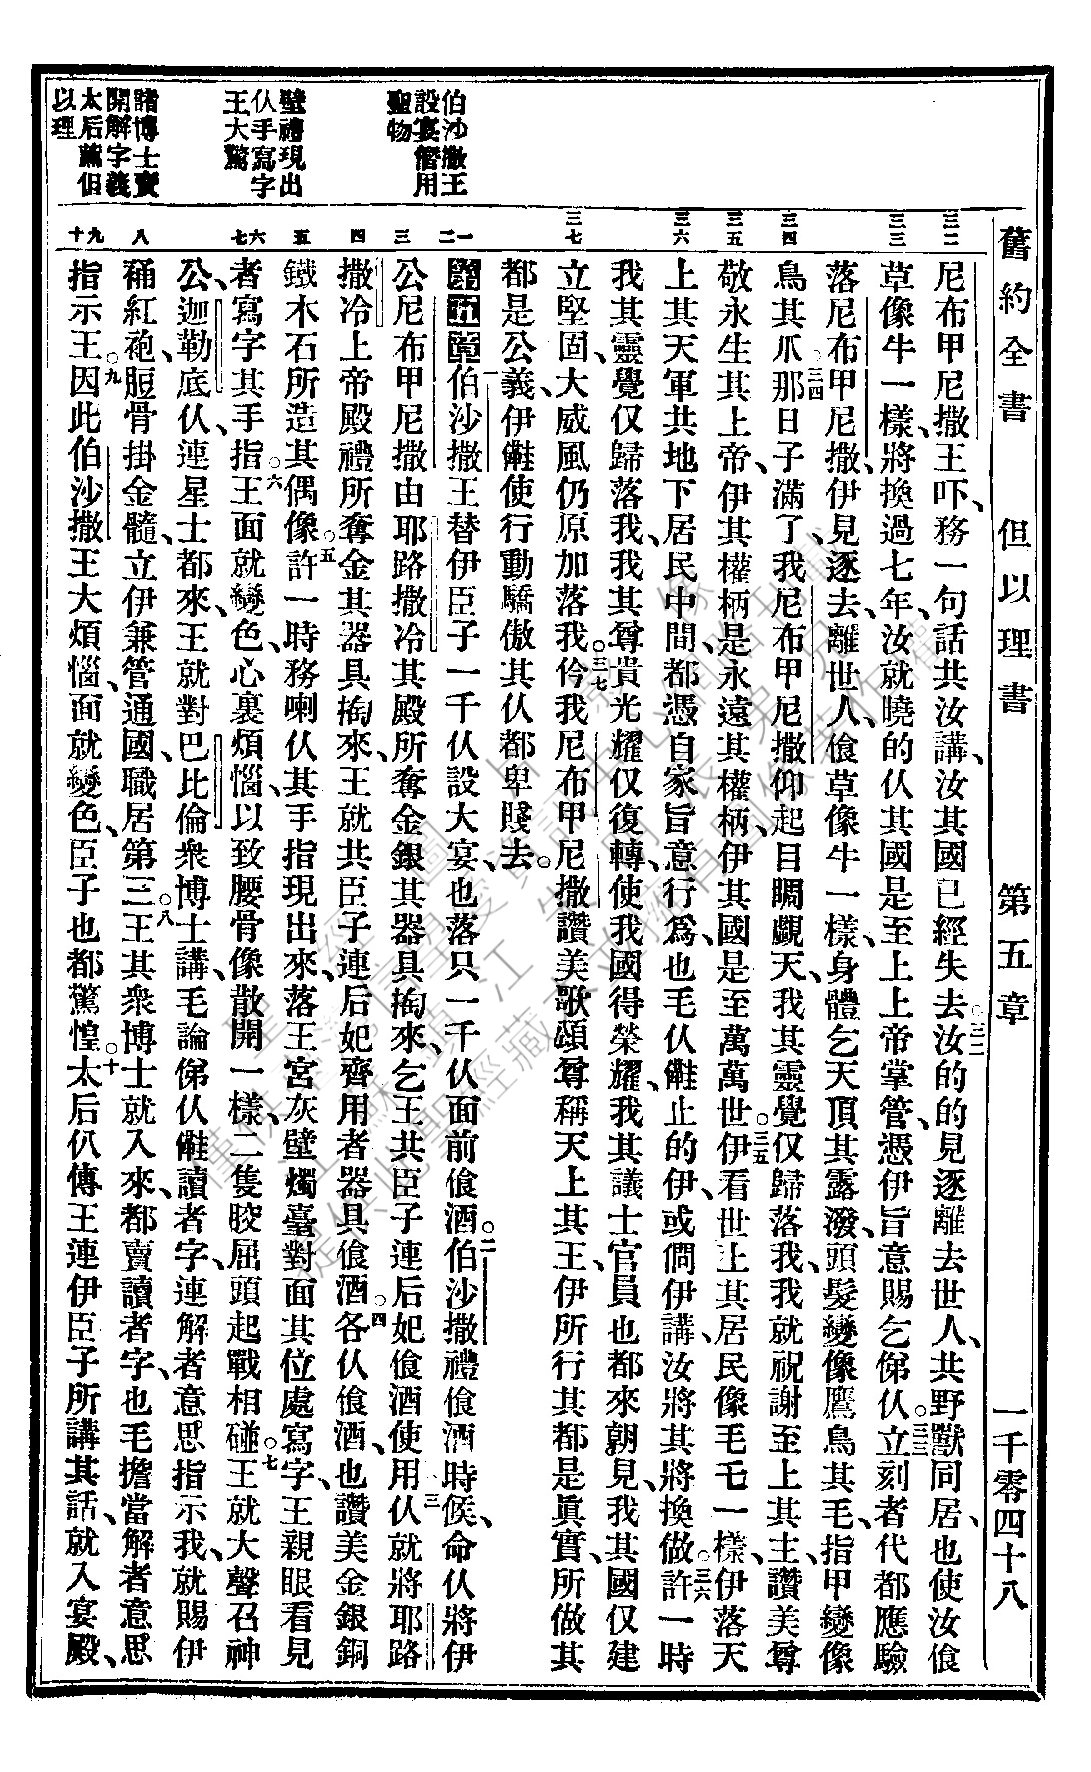 舊約全書 但以理書 第五章 一千零四十八
三二 三三 三四 三五 三六 三七
尼布甲尼撒王吓、務一句話共汝講、汝其國已經失去汝的的見逐離去世人、共野獸同居、也使汝飡
草像牛一樣、將換過七年、汝就曉的仈其國是至上上帝掌管、憑伊旨意賜乞俤仈。立刻者代都應驗
落尼布甲尼撒、伊見逐去、離世人、飡草像牛一樣、身體乞天頂其露潑、頭髮變像鷹鳥其毛、指甲變像
鳥其爪。那日子滿了、我尼布甲尼撒仰起目睭覷天、我其靈覺仅歸落我、我就祝謝至上其主、讚美尊
敬永生其上帝、伊其權柄是永遠其權柄、伊其國是至萬萬世。伊看世上其居民像毛乇一樣、伊落天
上其天軍共地下居民中間、都憑自家旨意行爲、也毛仈𠆧止的伊、或僴伊講、汝將其將換做。許一時
我其靈覺仅歸落我、我其尊貴光耀仅復轉、使我國得榮耀、我其議士官員也都來朝見、我其國仅建
立堅固、大威風仍原加落我。伶我尼布甲尼撒讚美歌頌尊稱天上其王、伊所行其都是眞實、所做其
都是公義、伊𠆧使行動驕傲其仈都卑賤去。
伯沙撒王設宴僭用聖物
一二 三 四 五 六七 八 九十
第五章 伯沙撒王替伊臣子一千仈設大宴、也落只一千仈面前飡酒。伯沙撒禮飡酒時候、命仈將伊
公尼布甲尼撒由耶路撒冷其殿所奪金銀其器具掏來、乞王共臣子連后妃飡酒使用仈就將耶路
撒冷上帝殿禮所奪金其器具掏來、王就共臣子連后妃齊用者器具飡酒。各仈飡酒、也讚美金銀銅
鐵木石所造其偶像。許一時務喇仈其手指現出來、落王宮灰壁燭臺對面其位處寫字、王親眼看見
者寫字其手指。王面就變色、心裏煩惱、以致腰骨像散開一樣、二隻骹屈頭起戰相碰。王就大聲召神
公、迦勒底仈連星士都來、王就對巴比倫衆博士講、毛論俤仈𠆧讀者字、連解者意思指示我、就賜伊
䘼紅袍、脰骨掛金髓、立伊兼管通國、職居第三。王其衆博士就入來、都賣讀者字、也毛擔當解者意思
指示王。因此伯沙撒王大煩惱、面就變色、臣子也都驚惶。太后仈傳王連伊臣子所講其話、就入宴殿、
壁禮現出仈手寫字王大驚
諸博士賣開解字義太后薦但以理